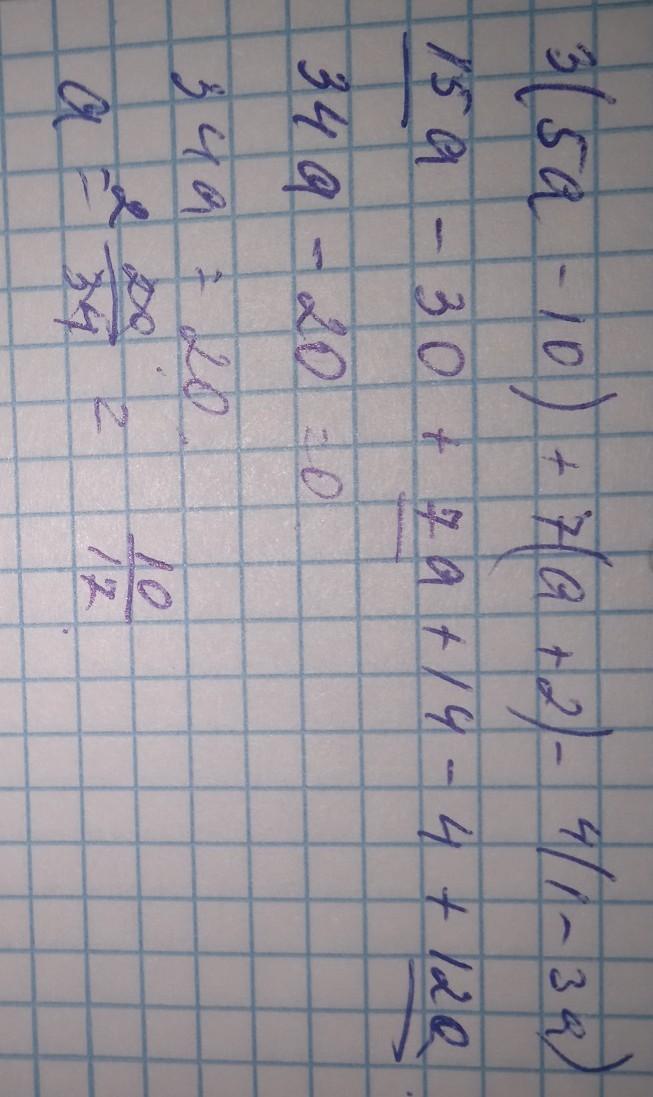 3(5a - 10) + 7(a + 2) - 4(1 - 3a)
15a - 30 + 7a + 14 - 4 + 12a
34a - 20 = 0
34a = 20
a = 20/34 = 10/17